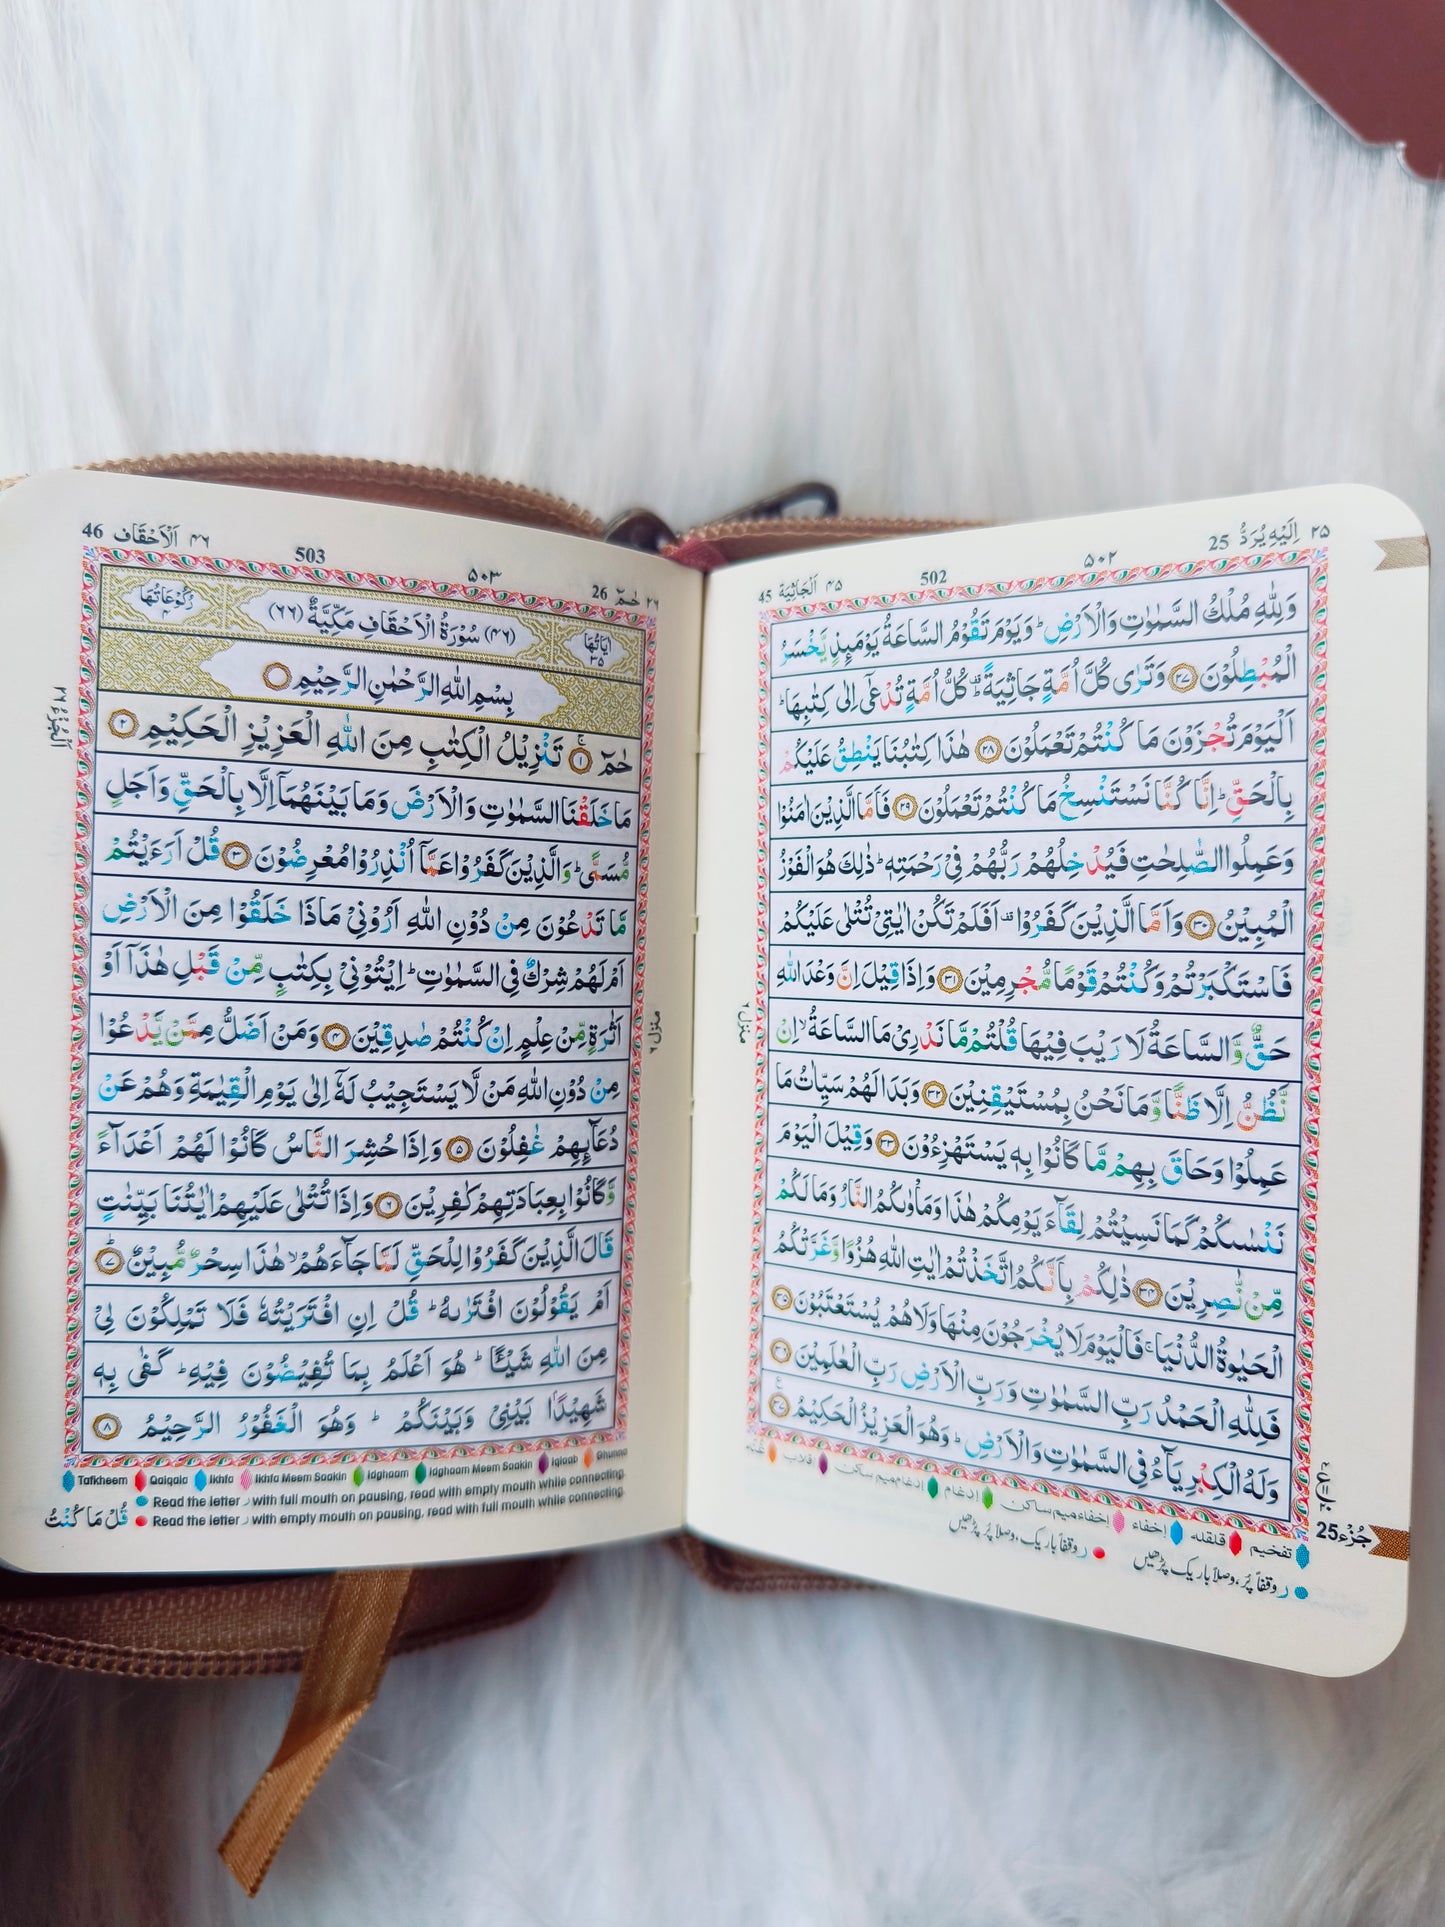 ٢٥ اِلَيْهِ يُرَدُّ 25
٥٠٢
502
٤٥ اَلْجَاثِيَة 45
وَلِلّٰهِ مُلْكُ السَّمٰوٰتِ وَالْاَرْضِ ؕ وَيَوْمَ تَقُوْمُ السَّاعَةُ يَوْمَىِٕذٍ يَّخْسَرُ
الْمُبْطِلُوْنَ ٢٧ وَتَرٰى كُلَّ اُمَّةٍ جَاثِيَةً ۟ كُلُّ اُمَّةٍ تُدْعٰۤى اِلٰى كِتٰبِهَا ؕ
اَلْيَوْمَ تُجْزَوْنَ مَا كُنْتُمْ تَعْمَلُوْنَ ٢٨ هٰذَا كِتٰبُنَا يَنْطِقُ عَلَيْكُمْ
بِالْحَقِّ ؕ اِنَّا كُنَّا نَسْتَنْسِخُ مَا كُنْتُمْ تَعْمَلُوْنَ ٢٩ فَاَمَّا الَّذِيْنَ اٰمَنُوْا
وَعَمِلُوا الصّٰلِحٰتِ فَيُدْخِلُهُمْ رَبُّهُمْ فِيْ رَحْمَتِهٖ ؕ ذٰلِكَ هُوَ الْفَوْزُ
الْمُبِيْنُ ٣٠ وَاَمَّا الَّذِيْنَ كَفَرُوْا ۟ اَفَلَمْ تَكُنْ اٰيٰتِيْ تُتْلٰى عَلَيْكُمْ
فَاسْتَكْبَرْتُمْ وَكُنْتُمْ قَوْمًا مُّجْرِمِيْنَ ٣١ وَاِذَا قِيْلَ اِنَّ وَعْدَ اللّٰهِ
حَقٌّ وَّالسَّاعَةُ لَا رَيْبَ فِيْهَا قُلْتُمْ مَّا نَدْرِيْ مَا السَّاعَةُ ۙ اِنْ
نَّظُنُّ اِلَّا ظَنًّا وَّمَا نَحْنُ بِمُسْتَيْقِنِيْنَ ٣٢ وَبَدَا لَهُمْ سَيِّاٰتُ مَا
عَمِلُوْا وَحَاقَ بِهِمْ مَّا كَانُوْا بِهٖ يَسْتَهْزِءُوْنَ ٣٣ وَقِيْلَ الْيَوْمَ
نَنْسٰىكُمْ كَمَا نَسِيْتُمْ لِقَآءَ يَوْمِكُمْ هٰذَا وَمَاْوٰىكُمُ النَّارُ وَمَا لَكُمْ
مِّنْ نّٰصِرِيْنَ ٣٤ ذٰلِكُمْ بِاَنَّكُمُ اتَّخَذْتُمْ اٰيٰتِ اللّٰهِ هُزُوًا وَّغَرَّتْكُمُ
الْحَيٰوةُ الدُّنْيَا ۚ فَالْيَوْمَ لَا يُخْرَجُوْنَ مِنْهَا وَلَا هُمْ يُسْتَعْتَبُوْنَ ٣٥
فَلِلّٰهِ الْحَمْدُ رَبِّ السَّمٰوٰتِ وَرَبِّ الْاَرْضِ رَبِّ الْعٰلَمِيْنَ ٣٦
وَلَهُ الْكِبْرِيَآءُ فِي السَّمٰوٰتِ وَالْاَرْضِ ؕ وَهُوَ الْعَزِيْزُ الْحَكِيْمُ ٣٧
منزل ٦
جُزْء 25
تفخيم قلقله إخفاء إخفاء ميم ساكن إدغام إدغام ميم ساكن قلاب غنّه
ر وقفاً پُر، وصلاً باریک پڑھیں ر وقفاً باریک، وصلاً پُر پڑھیں
٢٦ حٰمٓ 26
٥٠٣
503
٤٦ اَلْاَحْقَاف 46
اٰيَاتُهَا ٣٥
(٤٦) سُوْرَةُ الْاَحْقَافِ مَكِّيَّةٌ (٦٦)
رُكُوْعَاتُهَا ٤
بِسْمِ اللّٰهِ الرَّحْمٰنِ الرَّحِيْمِ
حٰمٓ ١ تَنْزِيْلُ الْكِتٰبِ مِنَ اللّٰهِ الْعَزِيْزِ الْحَكِيْمِ ٢
مَا خَلَقْنَا السَّمٰوٰتِ وَالْاَرْضَ وَمَا بَيْنَهُمَاۤ اِلَّا بِالْحَقِّ وَاَجَلٍ
مُّسَمًّى ؕ وَالَّذِيْنَ كَفَرُوْا عَمَّاۤ اُنْذِرُوْا مُعْرِضُوْنَ ٣ قُلْ اَرَءَيْتُمْ
مَّا تَدْعُوْنَ مِنْ دُوْنِ اللّٰهِ اَرُوْنِيْ مَاذَا خَلَقُوْا مِنَ الْاَرْضِ
اَمْ لَهُمْ شِرْكٌ فِي السَّمٰوٰتِ ؕ اِيْتُوْنِيْ بِكِتٰبٍ مِّنْ قَبْلِ هٰذَاۤ اَوْ
اَثٰرَةٍ مِّنْ عِلْمٍ اِنْ كُنْتُمْ صٰدِقِيْنَ ٤ وَمَنْ اَضَلُّ مِمَّنْ يَّدْعُوْا
مِنْ دُوْنِ اللّٰهِ مَنْ لَّا يَسْتَجِيْبُ لَهٗۤ اِلٰى يَوْمِ الْقِيٰمَةِ وَهُمْ عَنْ
دُعَآىِٕهِمْ غٰفِلُوْنَ ٥ وَاِذَا حُشِرَ النَّاسُ كَانُوْا لَهُمْ اَعْدَآءً
وَّكَانُوْا بِعِبَادَتِهِمْ كٰفِرِيْنَ ٦ وَاِذَا تُتْلٰى عَلَيْهِمْ اٰيٰتُنَا بَيِّنٰتٍ
قَالَ الَّذِيْنَ كَفَرُوْا لِلْحَقِّ لَمَّا جَآءَهُمْ ۙ هٰذَا سِحْرٌ مُّبِيْنٌ ٧
اَمْ يَقُوْلُوْنَ افْتَرٰىهُ ؕ قُلْ اِنِ افْتَرَيْتُهٗ فَلَا تَمْلِكُوْنَ لِيْ
مِنَ اللّٰهِ شَيْـًٔا ؕ هُوَ اَعْلَمُ بِمَا تُفِيْضُوْنَ فِيْهِ ؕ كَفٰى بِهٖ
شَهِيْدًاۢ بَيْنِيْ وَبَيْنَكُمْ ؕ وَهُوَ الْغَفُوْرُ الرَّحِيْمُ ٨
اَلْجُزْءُ ٢٦
منزل ٦
Tafkheem Qalqala Ikhfa Ikhfa Meem Saakin Idghaam Idghaam Meem Saakin Iqlaab Ghunna
Read the letter ر with full mouth on pausing, read with empty mouth while connecting.
قُلْ مَا كُنْتُ Read the letter ر with empty mouth on pausing, read with full mouth while connecting.